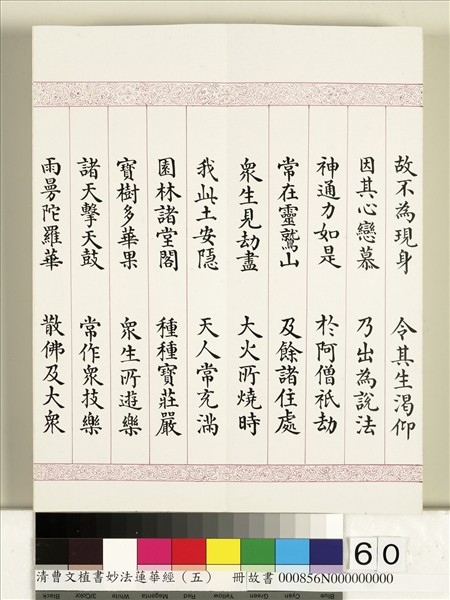 故不為現身　令其生渴仰
因其心戀慕　乃出為說法
神通力如是　於阿僧祇劫
常在靈鷲山　及餘諸住處
衆生見劫盡　大火所燒時
我此土安隱　天人常充滿
園林諸堂閣　種種寶莊嚴
寶樹多華果　衆生所遊樂
諸天擊天鼓　常作衆技樂
雨曼陀羅華　散佛及大衆
60
清曹文植書妙法蓮華經（五）　冊故書 000856N000000000
Black 3/Color White Magenta Red Yellow Green Cyan Blue